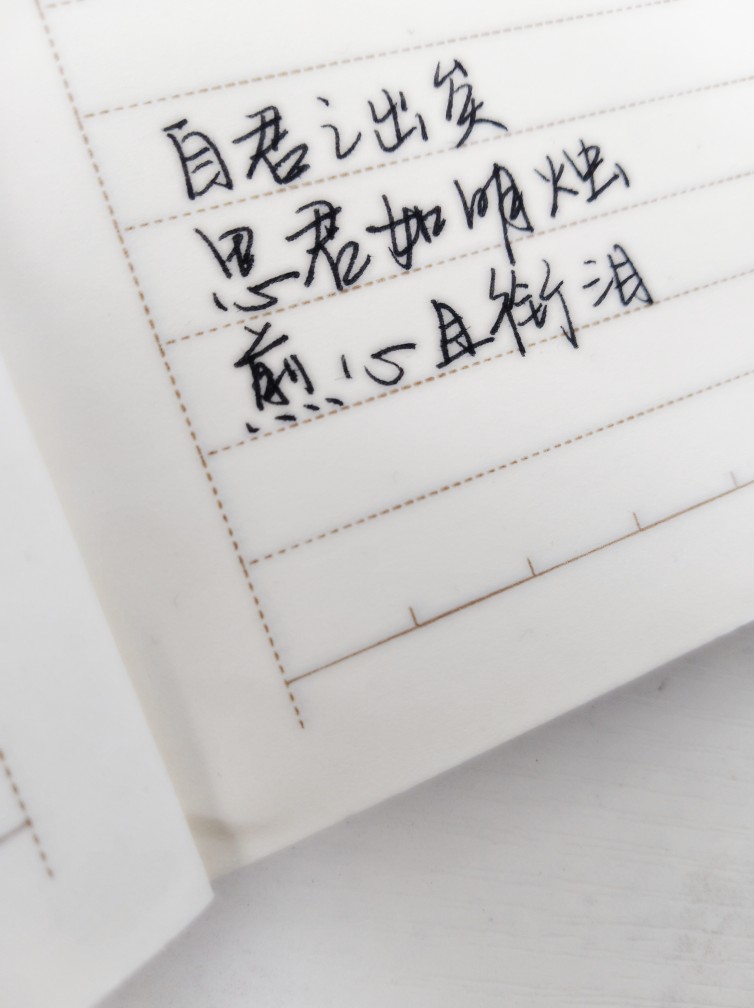 自君之出矣
思君如明烛
煎心且衔泪